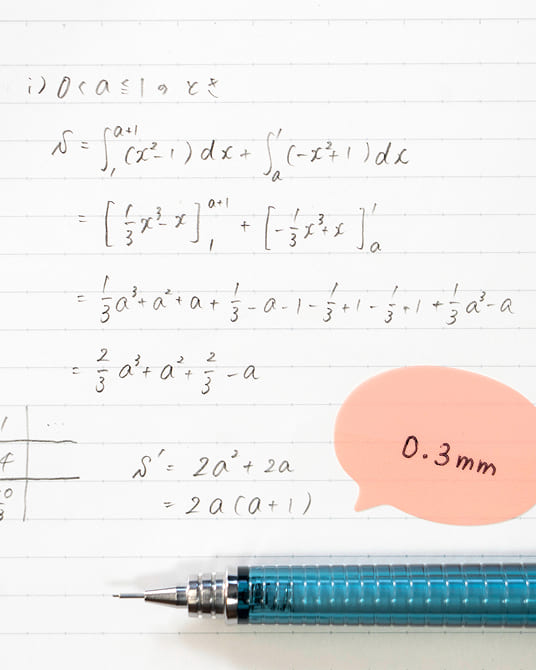 i) 0 < a ≦ 1 のとき
S = ∫₁^{a+1} (x² - 1) dx + ∫ₐ^1 (-x² + 1) dx
= [1/3 x³ - x]₁^{a+1} + [-1/3 x³ + x]ₐ^1
= 1/3 a³ + a² + a + 1/3 - a - 1 - 1/3 + 1 - 1/3 + 1 + 1/3 a³ - a
= 2/3 a³ + a² + 2/3 - a
S' = 2a² + 2a
= 2a(a+1)
0.3mm